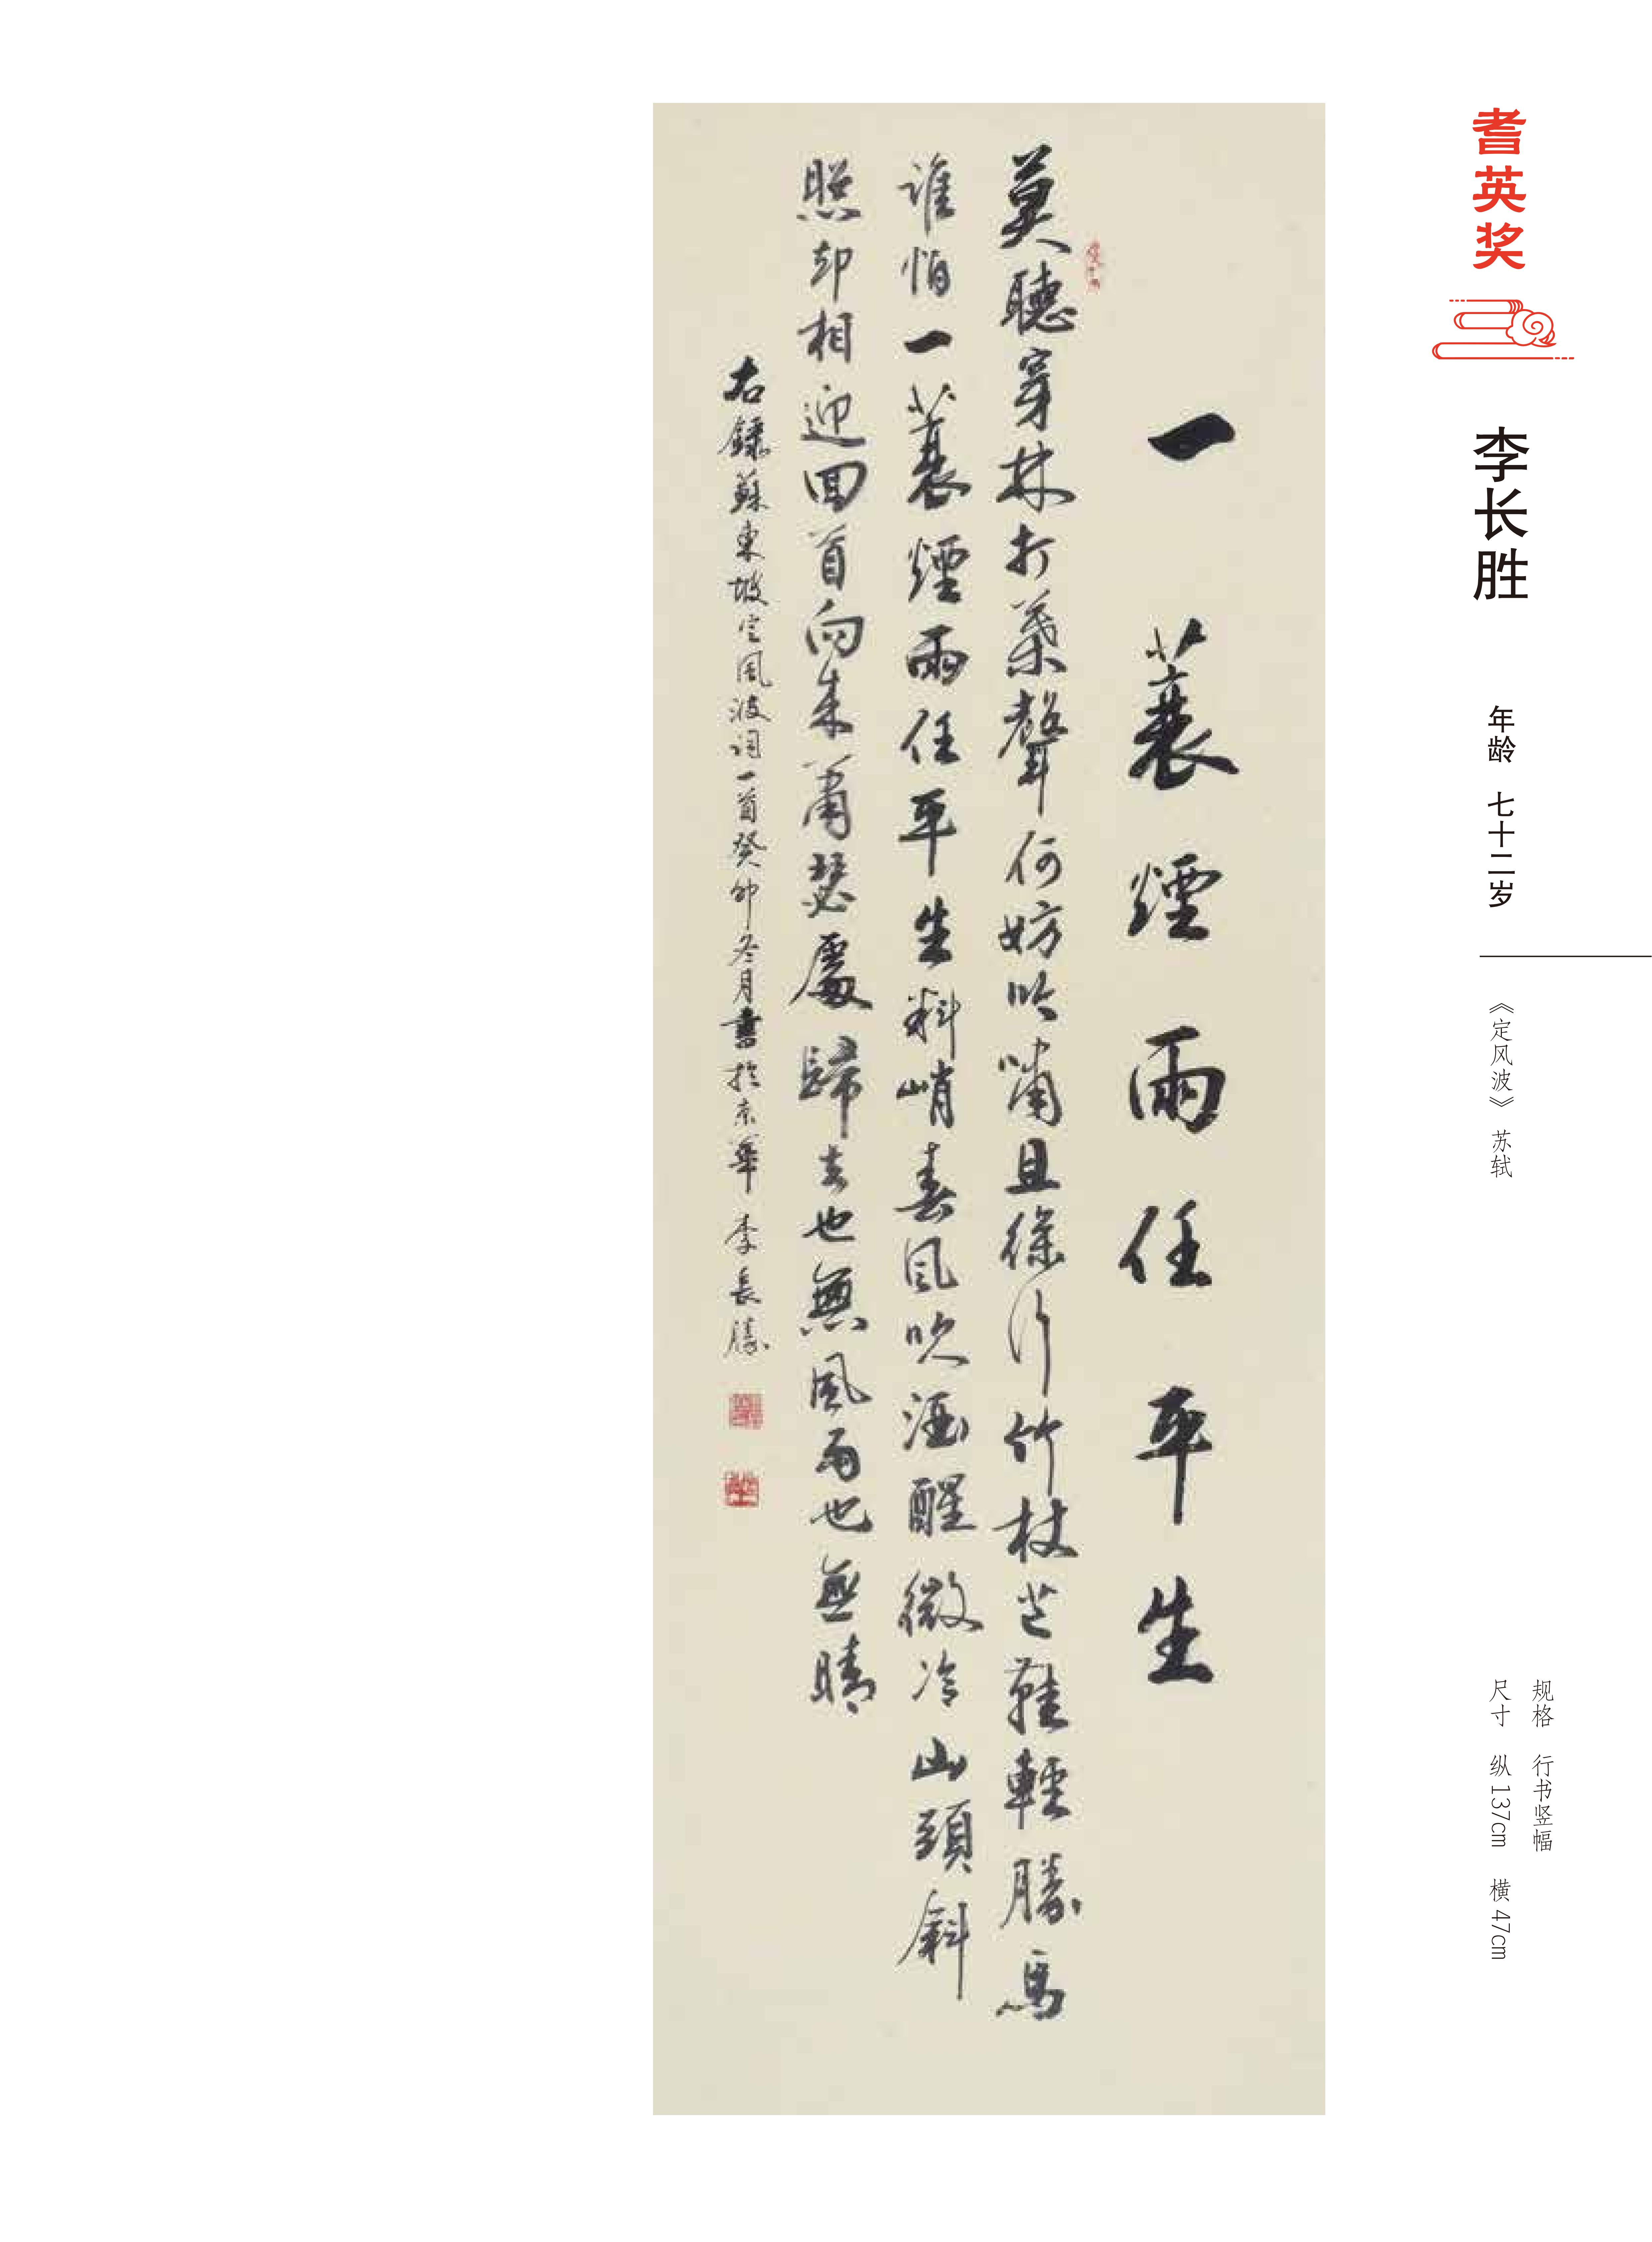 耆英奖
李长胜
年龄 七十二岁
《定风波》 苏轼
规格 行书竖幅
尺寸 纵137cm 横47cm
一蓑煙雨任平生
莫聽穿林打葉聲何妨吟嘯且徐行竹杖芒鞋輕勝馬
誰怕一蓑煙雨任平生料峭春風吹酒醒微冷山頭斜
照却相迎回首向来蕭瑟處歸去也無風雨也無晴
右錄蘇東坡定風波詞一首癸卯冬月書於京華 李長勝